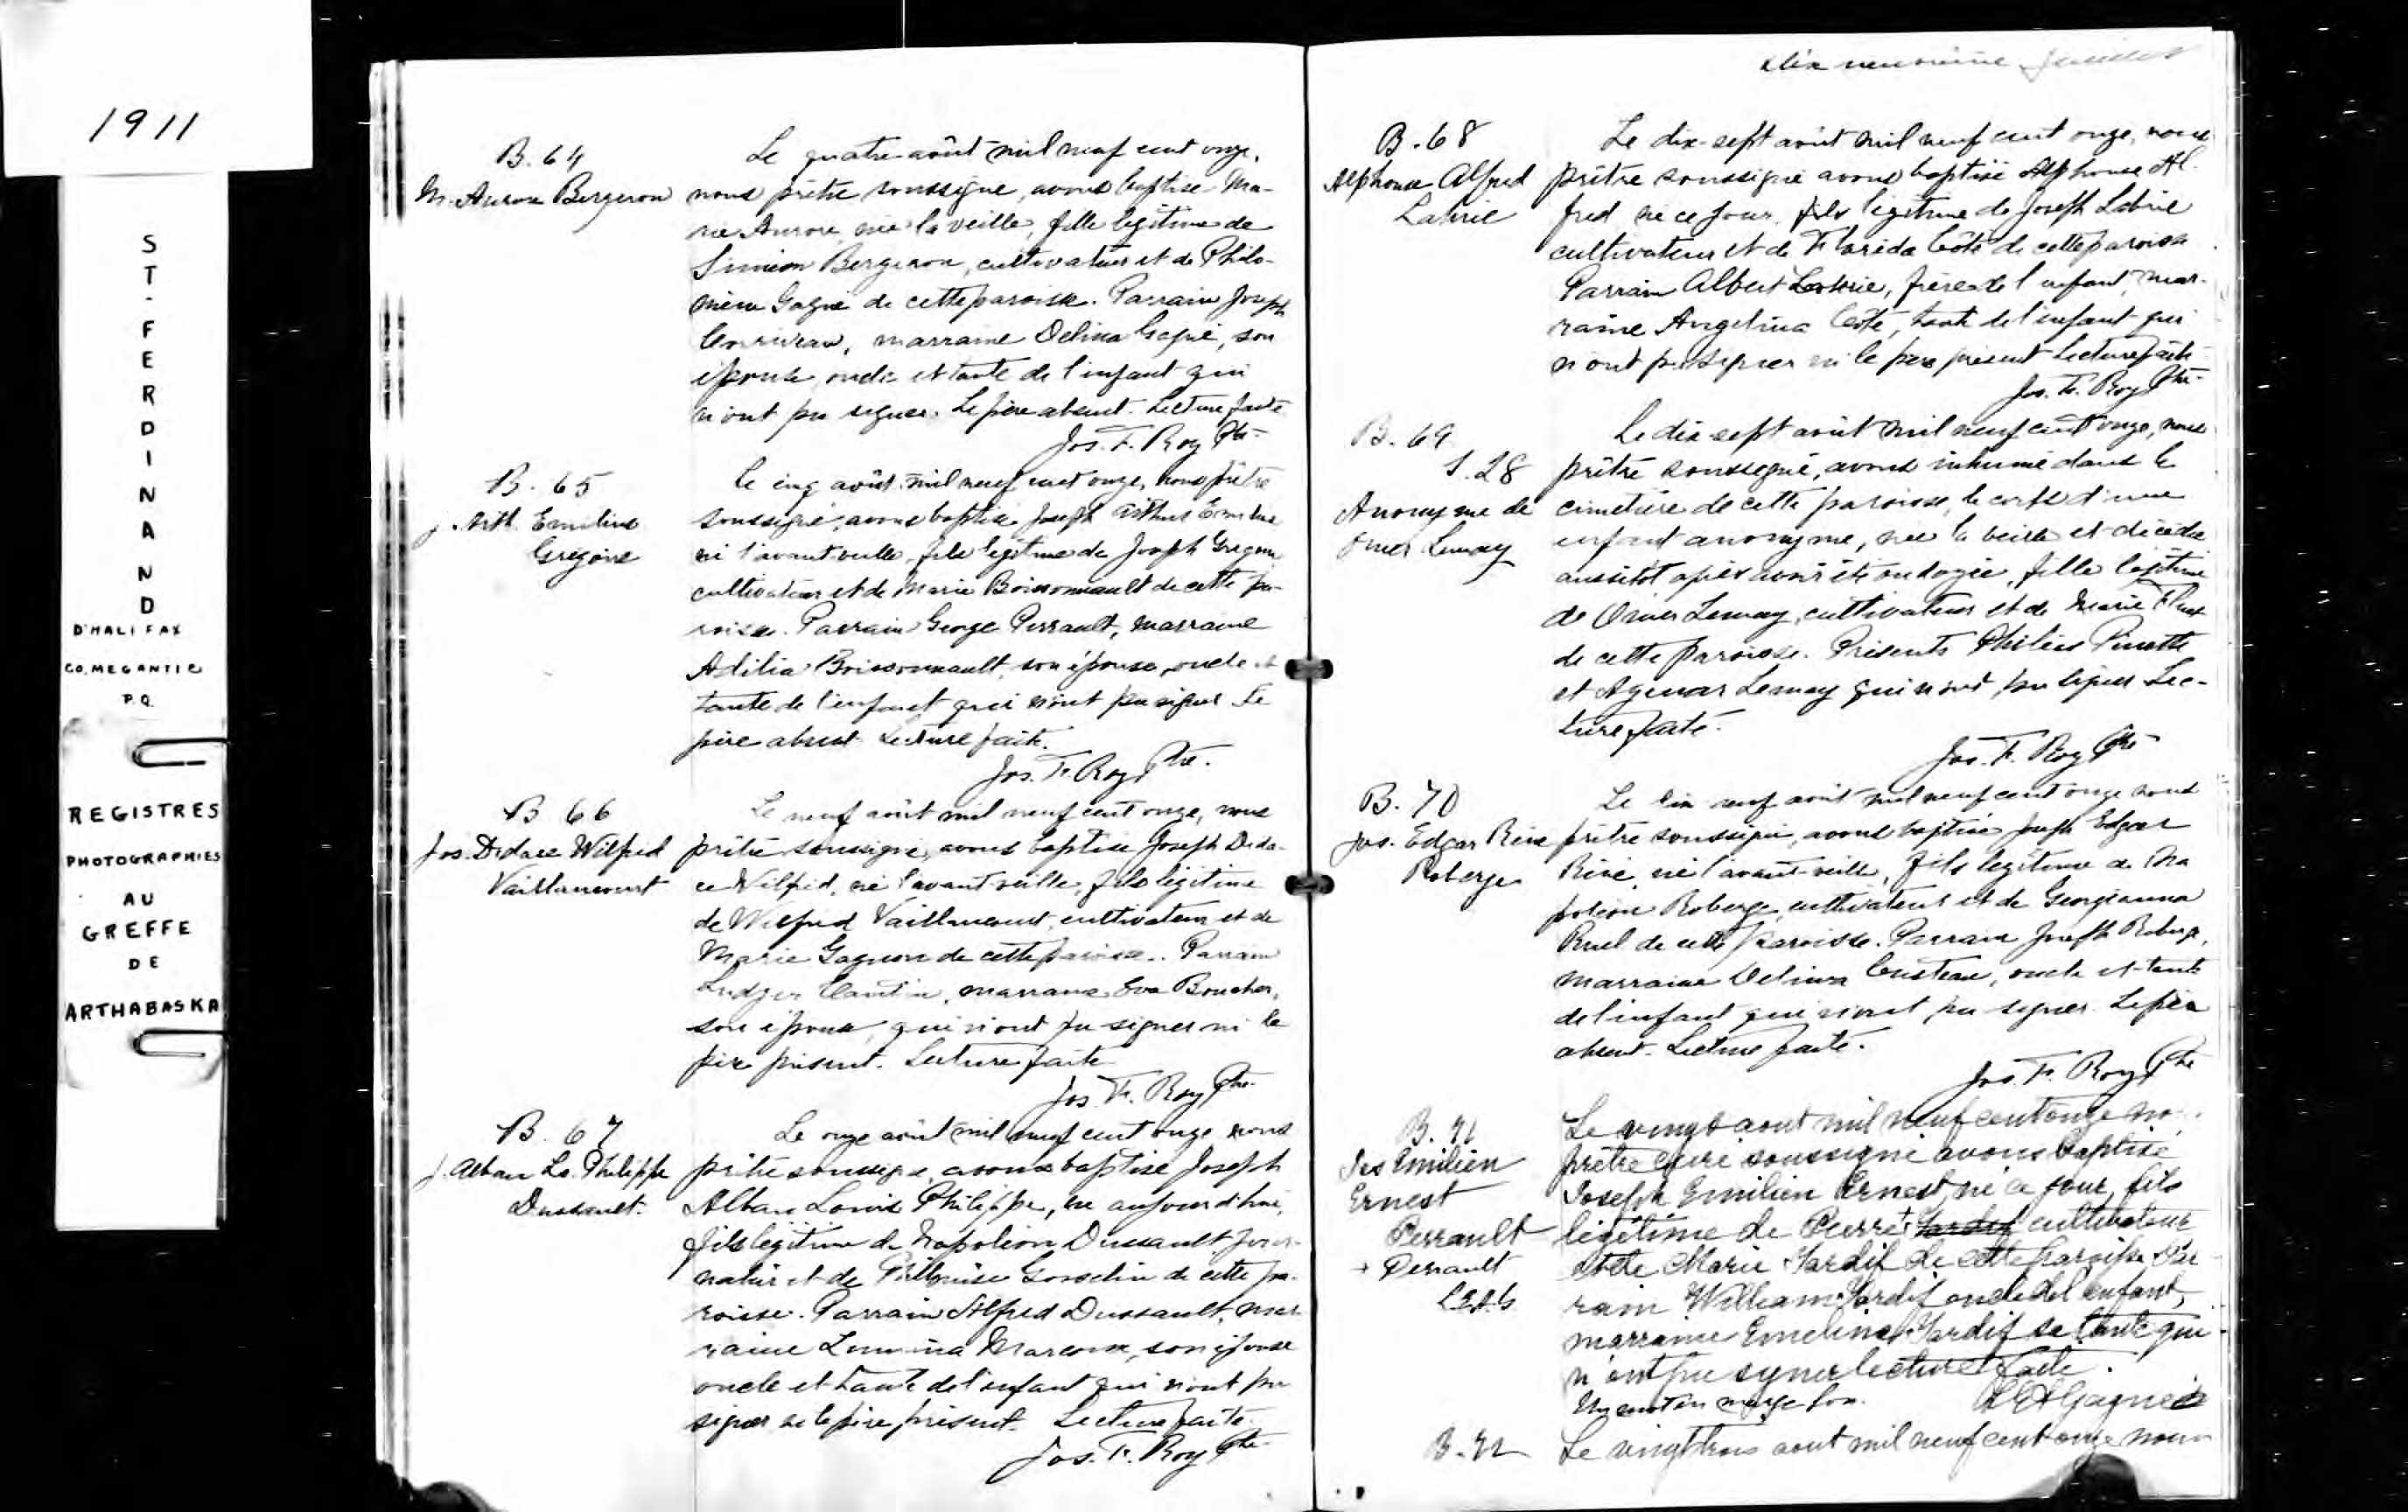 1911
ST-FERDINAND
D'HALIFAX
CO. MEGANTIC
P.Q.
REGISTRES
PHOTOGRAPHIES
AU
GREFFE
DE
ARTHABASKA
B. 64
M. Aurore Bergeron
Le quatre août mil neuf cent onze,
nous prêtre soussigné, avons baptisé Ma-
rie Aurore, née la veille, fille légitime de
Siméon Bergeron, cultivateur et de Philo-
mène Gagné de cette paroisse. Parrain Joseph
Corriveau, marraine Delina Gagné, son
épouse, oncle et tante de l'enfant qui
n'ont pu signer. Le père absent. Lecture faite.
Jos. F. Roy Ptre
B. 65
J. Arth. Emilius
Grégoire
Le cinq août mil neuf cent onze, nous prêtre
soussigné, avons baptisé Joseph Arthur Emilius
né l'avant veille, fils légitime de Joseph Grégoire
cultivateur et de Marie Boissonnault de cette pa-
roisse. Parrain George Perrault, marraine
Adilia Boissonnault, son épouse, oncle et
tante de l'enfant qui n'ont pu signer. Le
père absent. Lecture faite.
Jos. F. Roy Ptre.
B 66
Jos. Didace Wilfrid
Vaillancourt
Le neuf août mil neuf cent onze, nous
prêtre soussigné, avons baptisé Joseph Dida-
ce Wilfrid, né l'avant veille, fils légitime
de Wilfrid Vaillancourt, cultivateur et de
Marie Gagnon de cette paroisse. Parrain
Ludger Cantin, marraine Eva Boucher,
son épouse, qui n'ont pu signer ni le
père présent. Lecture faite
Jos. F. Roy Ptre
B. 67
J. Alban Ls. Philippe
Dussault.
Le onze août mil neuf cent onze nous
prêtre soussigné, avons baptisé Joseph
Alban Louis Philippe, né aujourd'hui,
fils légitime de Napoléon Dussault jour-
nalier et de Philomène Gosselin de cette pa-
roisse. Parrain Alfred Dussault, mar-
raine Marcoux, son épouse
oncle et tante de l'enfant qui n'ont pu
signer ni le père présent. Lecture faite.
Jos. F. Roy Ptre
Dix neuvième Feuillet
B. 68
Alphonse Alfred
Labrie
Le dix-sept août mil neuf cent onze, nous
prêtre soussigné avons baptisé Alphonse Al-
fred né ce jour, fils légitime de Joseph Labrie
cultivateur et de Florida Côté de cette paroisse
Parrain Albert Labrie, frère de l'enfant, mar-
raine Angelina Côté, tante de l'enfant qui
n'ont pu signer ni le père présent Lecture faite
Jos. F. Roy Ptre
B. 69
S. 28
Anonyme de
Omer Lemay
Le dix-sept août mil neuf cent onze, nous
prêtre soussigné, avons inhumé dans le
cimetière de cette paroisse, le corps d'une
enfant anonyme, née la veille et décédée
aussitôt après avoir été ondoyée, fille légitime
de Omer Lemay, cultivateur et de Marie
de cette paroisse. Présents Philias Pinette
et Agenor Lemay qui n'ont pu signer. Lec-
ture faite.
Jos. F. Roy Ptre
B. 70
Jos. Edgar Réné
Roberge
Le dix neuf août mil neuf cent onze nous
prêtre soussigné, avons baptisé Joseph Edgar
Réné, né l'avant-veille, fils légitime de Na
poléon Roberge, cultivateur et de Georgianna
Ruel de cette paroisse. Parrain Joseph Roberge,
marraine Delima Couteau, oncle et tante
de l'enfant qui n'ont pu signer. Le père
absent. Lecture faite.
Jos. F. Roy Ptre
B. 71
Jos Emilien
Ernest
Perrault
+ Perrault
L.E.A.G
Le vingt aout mil neuf cent onze nous
prêtre curé soussigné avons baptisé
Joseph Emilien Ernest, né ce jour, fils
légitime de Pierre + Tardif cultivateur
et de Marie Tardif de cette paroisse Par
rain William Tardif oncle de l'enfant,
marraine Emelina Tardif sa tante qui
n'ont pu signer lecture faite.
Un mot en marge bon.
L E A Gagné
B. 72
Le vingt trois aout mil neuf cent onze nous